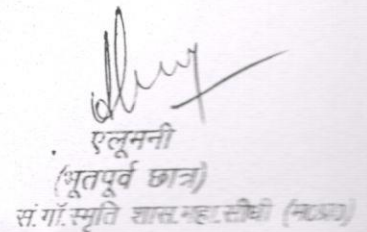 एलूमनी
(भूतपूर्व छात्र)
सं.गाॅ.स्मृति शास.महा.सीधी (म०प्र०)